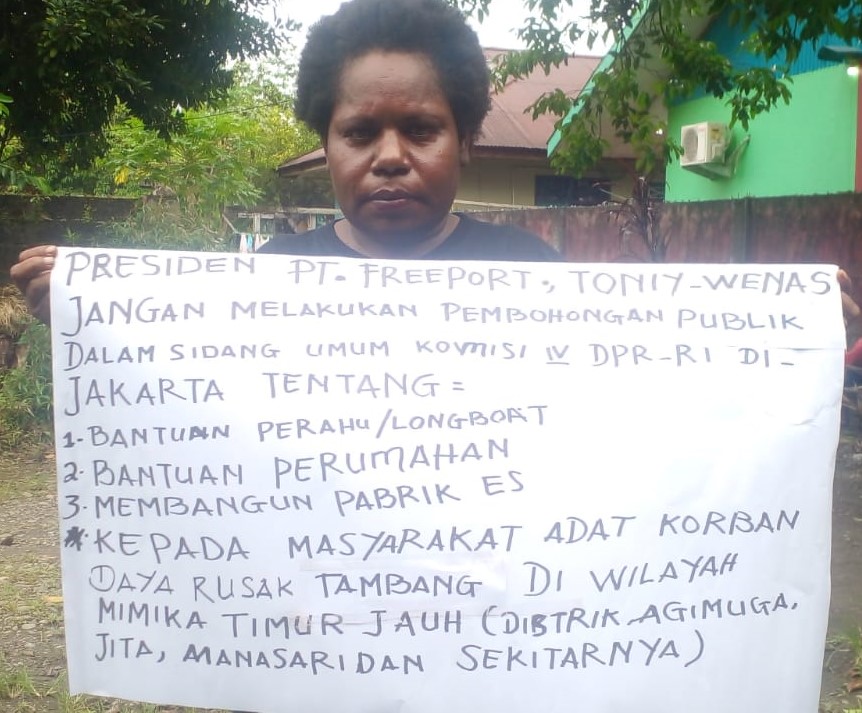 PRESIDEN PT. FREEPORT., TONIY-WENAS
JANGAN MELAKUKAN PEMBOHONGAN PUBLIK
DALAM SIDANG UMUM KOMISI IV DPR-RI DI-
JAKARTA TENTANG =
1. BANTUAN PERAHU/LONGBOAT
2. BANTUAN PERUMAHAN
3. MEMBANGUN PABRIK ES
*. KEPADA MASYARAKAT ADAT KORBAN
DAYA RUSAK TAMBANG DI WILAYAH
MIMIKA TIMUR JAUH (DISTRIK AGIMUGA,
JITA, MANASARI DAN SEKITARNYA)